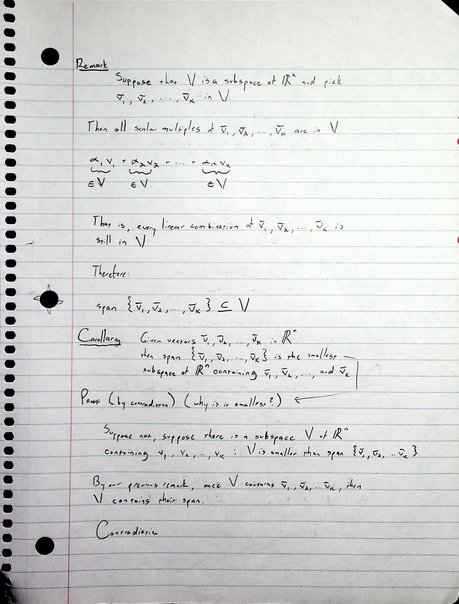 Remark
Suppose that V is a subspace of ℝⁿ and pick
v̄₁, v̄₂, ..., v̄ₖ in V
Then all scalar multiples of v̄₁, v̄₂, ..., v̄ₖ are in V
α₁v₁ + α₂v₂ + ... + αₖvₖ
∈V ∈V ∈V
That is, every linear combination of v̄₁, v̄₂, ..., v̄ₖ is
still in V
Therefore:
span {v̄₁, v̄₂, ..., v̄ₖ} ⊆ V
Corollary Given vectors v̄₁, v̄₂, ..., v̄ₖ in ℝⁿ
then span {v̄₁, v̄₂, ..., v̄ₖ} is the smallest
subspace of ℝⁿ containing v̄₁, v̄₂, ..., and v̄ₖ
Proof (by contradiction) (why is it smallest?)
Suppose not, suppose there is a subspace V of ℝⁿ
containing v₁, v₂, .., vₖ : V is smaller than span {v̄₁, v̄₂, .. v̄ₖ}
By our previous remark, once V contains v̄₁, v̄₂, ... v̄ₖ, then
V contains their span.
Contradiction